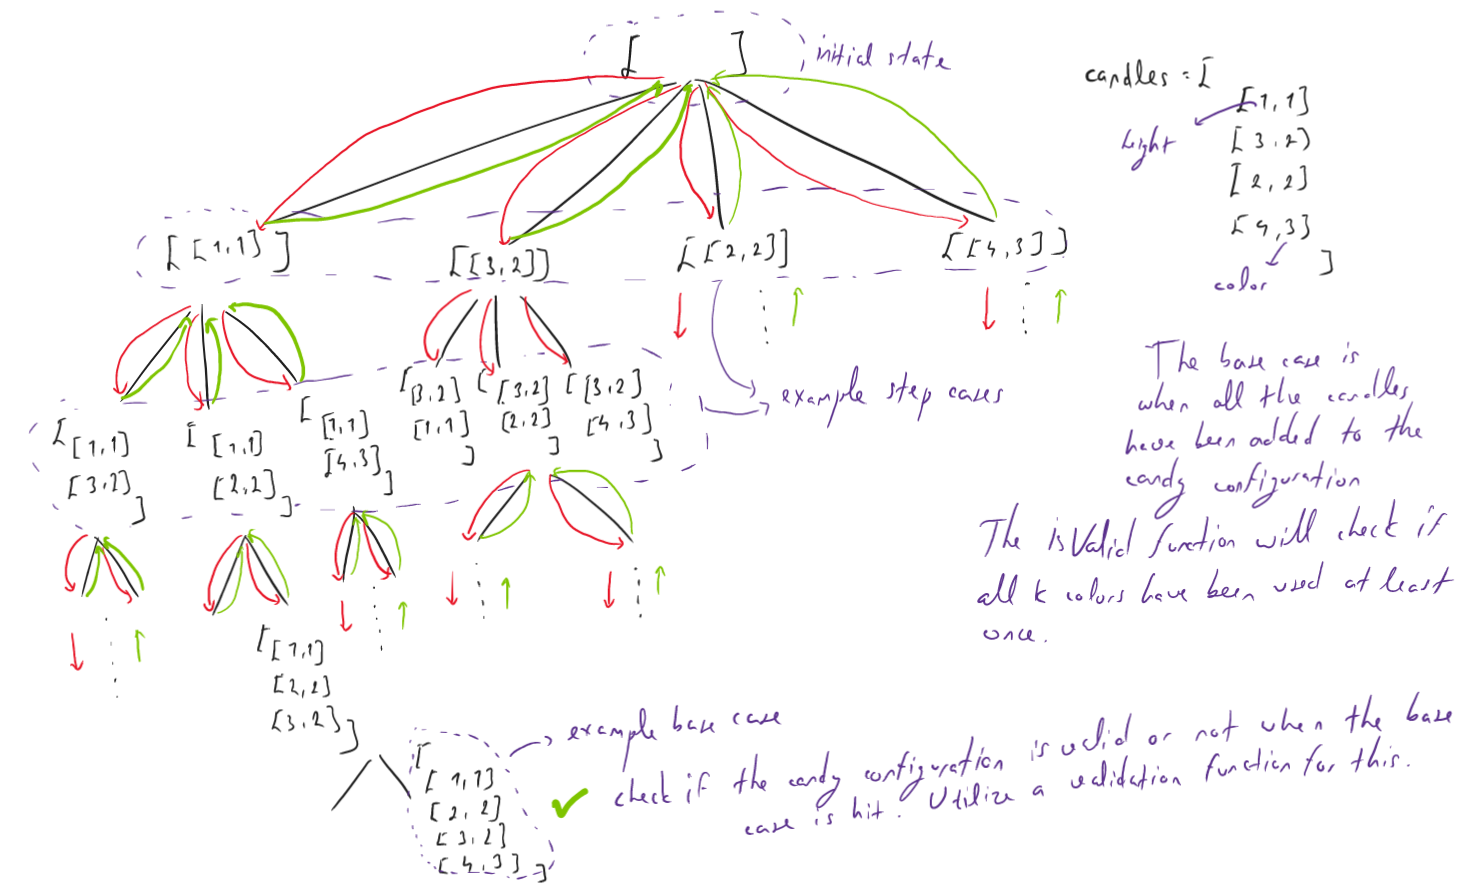 [ ]
initial state
candles = [
[1,1]
[3,2)
[2,2]
[4,3]
]
hight
color
[[1,1]]
[[3,2]]
[[2,2]]
[[4,3]]
example step cases
[
[1,1]
[3,2]
]
[
[1,1]
[2,2]
]
[
[1,1]
[4,3]
]
[
[3,2]
[1,1]
]
[
[3,2]
[2,2]
]
[
[3,2]
[4,3]
]
The base case is
when all the candles
have been added to the
candy configuration
The isValid function will check if
all k colors have been used at least
once.
[
[1,1]
[2,2]
[3,2]
]
example base case
[
[1,1]
[2,2]
[3,2]
[4,3]
]
check if the candy configuration is valid or not when the base
case is hit. Utilize a validation function for this.